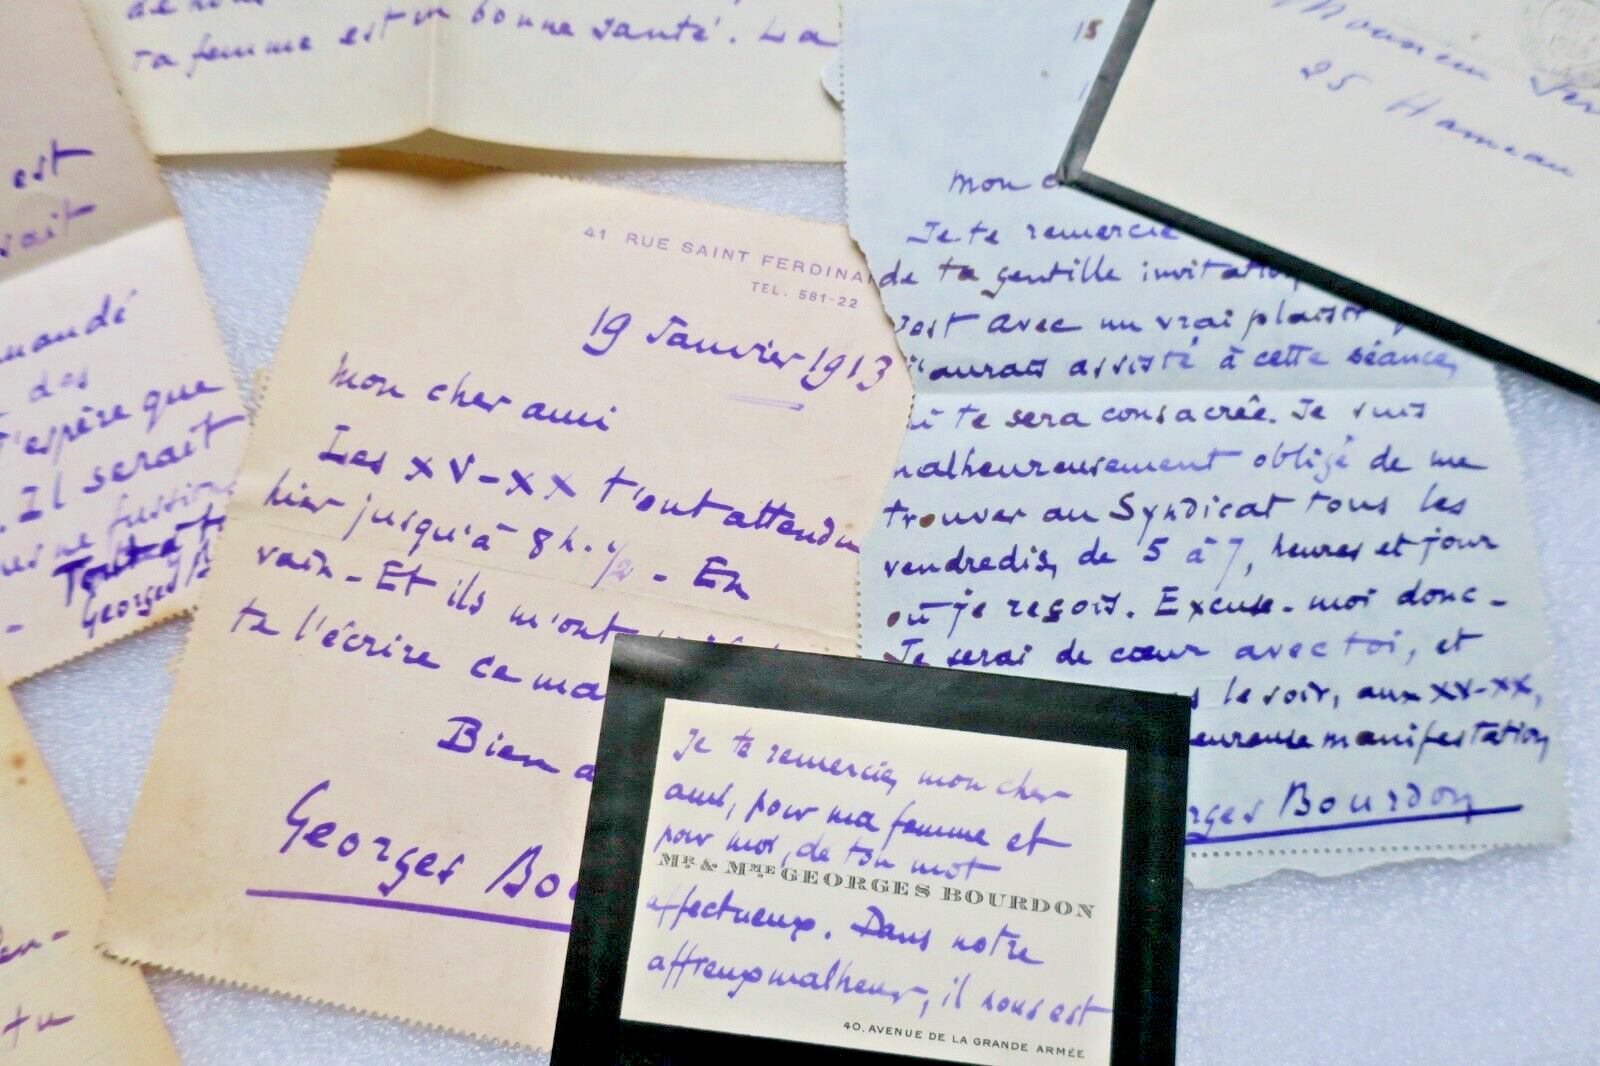 ta femme est en bonne santé. La
est
mandé
des
J'espère que
. Il serait
Tout à
Georges
tu
41 RUE SAINT FERDINA
TEL. 581-22
19 Janvier 1913
mon cher ami
Les XV-XX t'ont attendu
hier jusqu'à 8h. 1/2 - En
vain - Et ils m'ont
te l'écrire ce ma
Bien a
Georges Bo
15
mon c
Je te remercie
de ta gentille invitation
c'est avec un vrai plaisir
j'aurais assisté à cette séance,
qui te sera consacrée. Je suis
malheureusement obligé de me
trouver au Syndicat tous les
vendredis, de 5 à 7, heures et jour
où je reçois. Excuse-moi donc -
Je serai de cœur avec toi, et
le soir, aux XV-XX,
eureuse manifestation
rges Bourdon
Monsieur Fer
25 Hameau
Je te remercie, mon cher
ami, pour ma femme et
pour moi, de ton mot
MR & MME GEORGES BOURDON
affectueux. Dans notre
affreux malheur, il nous est
40, AVENUE DE LA GRANDE ARMÉE